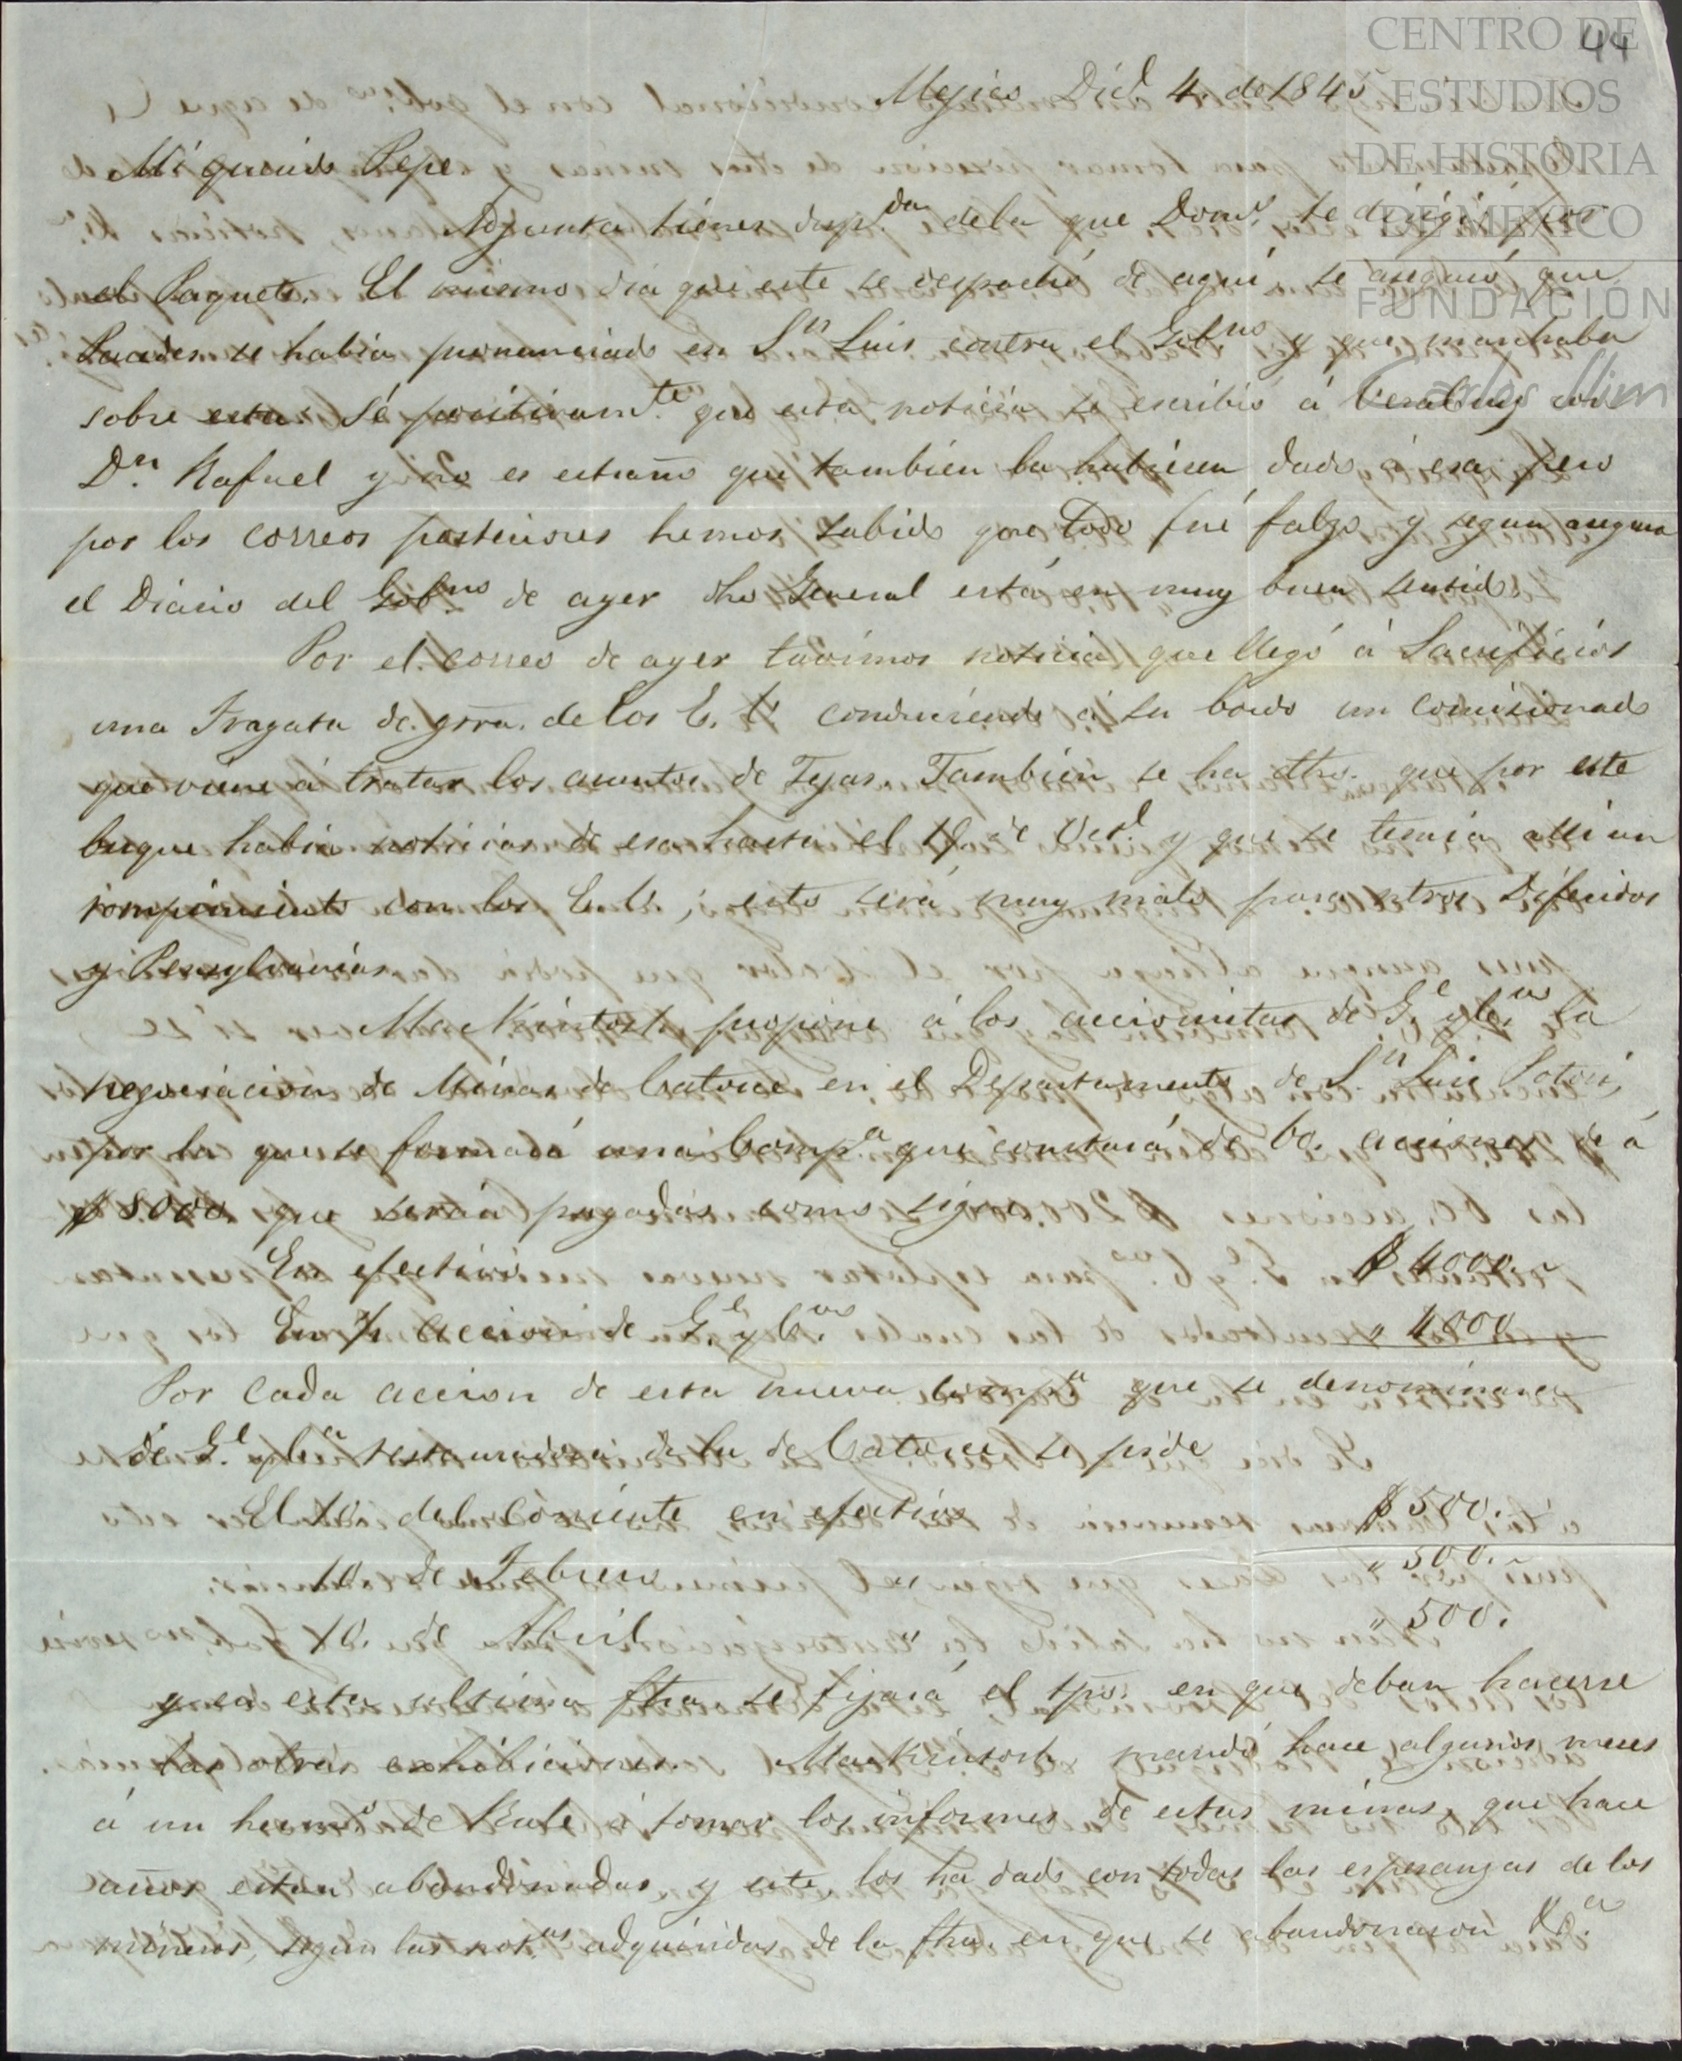 44
CENTRO DE
ESTUDIOS
DE HISTORIA
DE MEXICO
FUNDACIÓN
Carlos Slim
Mejico Dice 4. de 1845
Mi querido Pepe
Adjunta tienes dup.da dela que Dom.o te dirigió por
el Paquete. El mismo dia que este se despachó de aqui se aseguró que
Paredes se habia pronunciado en Sn Luis contra el Gob.no y que marchaba
sobre esta. Sé positivam.te que esta noticia se escribió á
Dn. Rafael y no es estraño que tambien la hubiesen dado á esa, pero
por los correos posteriores hemos sabido que todo fué falzo y segun asegura
el Diario del Gob.no de ayer dho General está en muy buen sentido.
Por el correo de ayer tuvimos noticia que llegó á Sacrificios
una Fragata de grra. de los E. U. conduciendo á su bordo un comisionado
que viene á tratar los asuntos de Tejas. Tambien se ha dho. que por este
buque habia noticias de esa hasta el de Oct.e y que se temia alli un
rompimiento con los E. U.; esto será muy malo para ntros Diferidos
y Pensylvanias.
MacKintosh propone á los accionistas de G.e y C.as la
negociacion de Minas de Catorce en el Departamento de S.n Luis Potosi,
por la que se formará una Comp.a que constará de 60. acciones de á
$ 8000. que serán pagadas como sigue
En efectivo $ 4000.
En 1/1 accion de G.e y C.as " 4000
Por cada accion de esta nueva Comp.a que se denominara
de G.e y C.a restauradora de la de Catorce, se pide
El 10. del corriente en efectivo $ 500.
10. de Febrero " " 500.
10. de Abril " " 500.
y en esta ultima fha se fijará el tpo. en que deban hacerse
las otras exhibiciones. MacKintosh mandó hace algunos meses
á un herm.o de Rule á tomar los informes de estas minas, que hace
años estan abandonadas, y este los ha dado con todas las esperanzas de los
mineros, segun las not.as adquiridas de la fha. en que se abandonaron